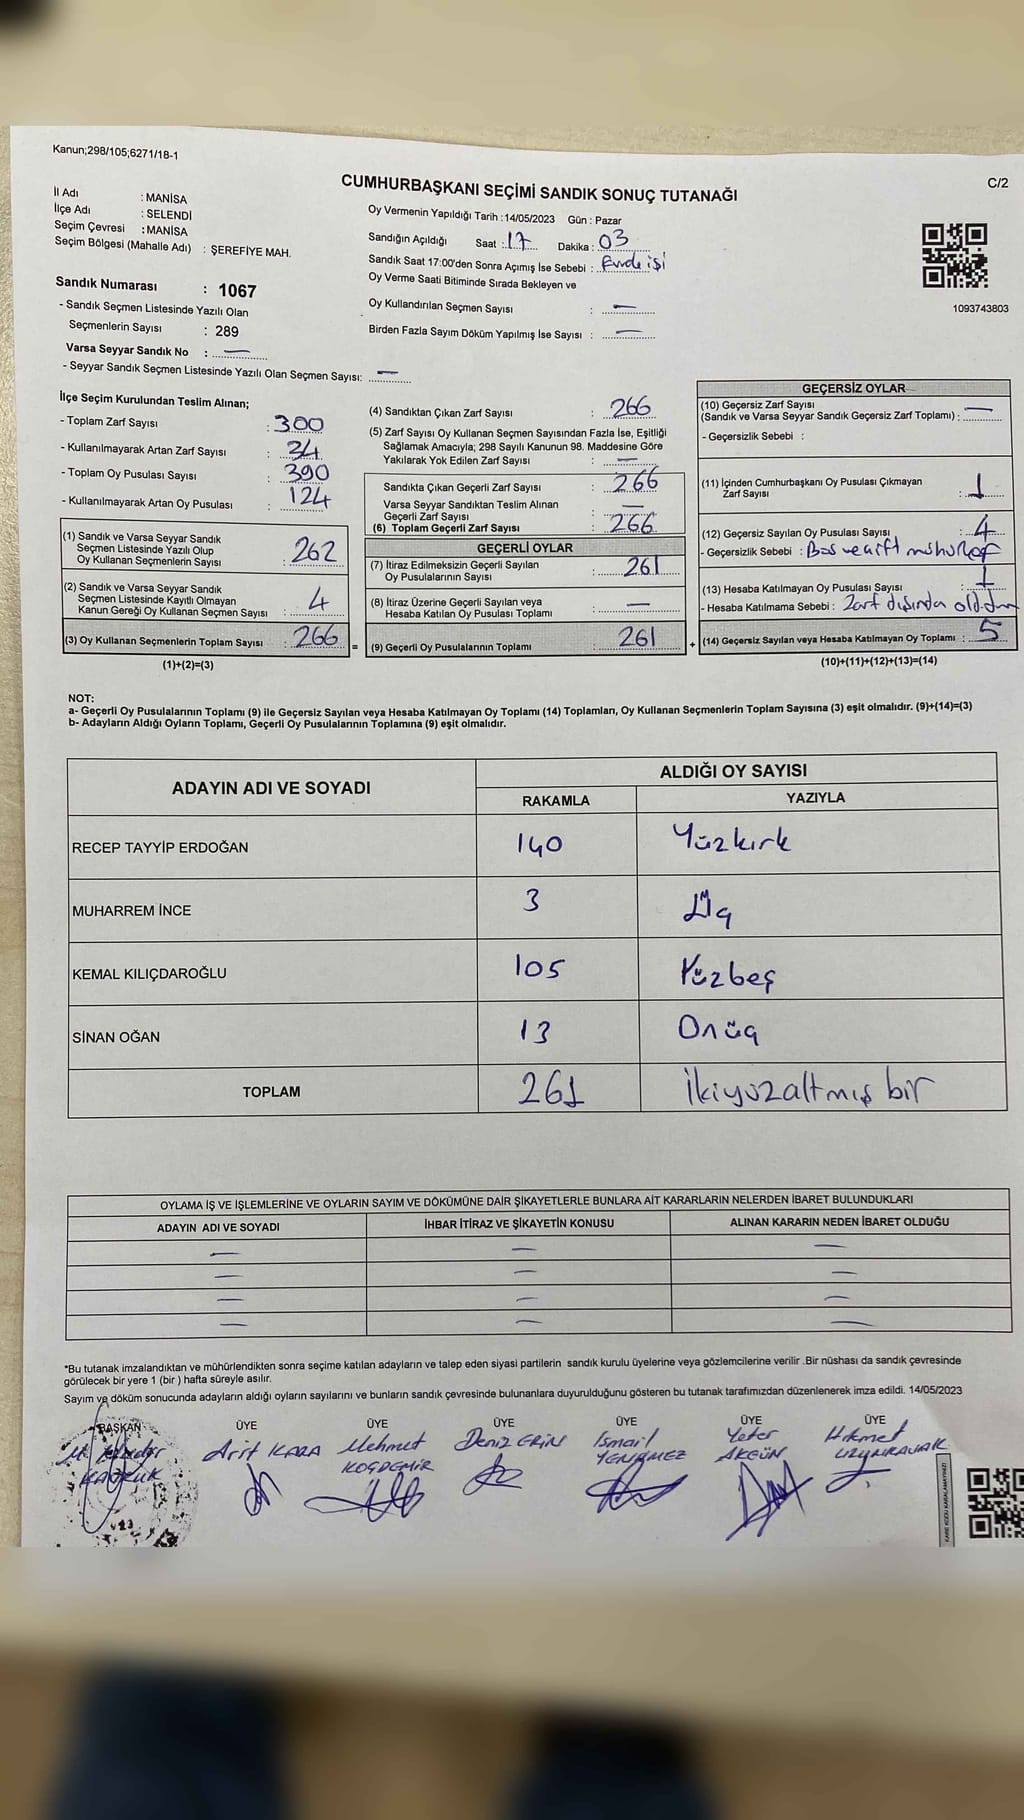 Kanun;298/105;6271/18-1
C/2
CUMHURBAŞKANI SEÇİMİ SANDIK SONUÇ TUTANAĞI
İl Adı : MANİSA
İlçe Adı : SELENDİ
Seçim Çevresi : MANİSA
Seçim Bölgesi (Mahalle Adı) : ŞEREFİYE MAH.
Sandık Numarası : 1067
- Sandık Seçmen Listesinde Yazılı Olan
Seçmenlerin Sayısı : 289
Varsa Seyyar Sandık No : —
- Seyyar Sandık Seçmen Listesinde Yazılı Olan Seçmen Sayısı: —
Oy Vermenin Yapıldığı Tarih :14/05/2023 Gün : Pazar
Sandığın Açıldığı Saat : 17 Dakika : 03
Sandık Saat 17:00'den Sonra Açımış İse Sebebi :
Oy Verme Saati Bitiminde Sırada Bekleyen ve
Oy Kullandırılan Seçmen Sayısı : —
Birden Fazla Sayım Döküm Yapılmış İse Sayısı : —
1093743803
İlçe Seçim Kurulundan Teslim Alınan;
- Toplam Zarf Sayısı : 300
- Kullanılmayarak Artan Zarf Sayısı : 34
- Toplam Oy Pusulası Sayısı : 390
- Kullanılmayarak Artan Oy Pusulası : 124
(1) Sandık ve Varsa Seyyar Sandık
Seçmen Listesinde Yazılı Olup
Oy Kullanan Seçmenlerin Sayısı : 262
(2) Sandık ve Varsa Seyyar Sandık
Seçmen Listesinde Kayıtlı Olmayan
Kanun Gereği Oy Kullanan Seçmen Sayısı : 4
(3) Oy Kullanan Seçmenlerin Toplam Sayısı : 266 =
(1)+(2)=(3)
(4) Sandıktan Çıkan Zarf Sayısı : 266
(5) Zarf Sayısı Oy Kullanan Seçmen Sayısından Fazla İse, Eşitliği
Sağlamak Amacıyla; 298 Sayılı Kanunun 98. Maddesine Göre
Yakılarak Yok Edilen Zarf Sayısı : —
Sandıkta Çıkan Geçerli Zarf Sayısı : 266
Varsa Seyyar Sandıktan Teslim Alınan
Geçerli Zarf Sayısı : —
(6) Toplam Geçerli Zarf Sayısı : 266
GEÇERLİ OYLAR
(7) İtiraz Edilmeksizin Geçerli Sayılan
Oy Pusulalarının Sayısı : 261
(8) İtiraz Üzerine Geçerli Sayılan veya
Hesaba Katılan Oy Pusulası Toplamı : —
(9) Geçerli Oy Pusulalarının Toplamı : 261 +
GEÇERSİZ OYLAR
(10) Geçersiz Zarf Sayısı
(Sandık ve Varsa Seyyar Sandık Geçersiz Zarf Toplamı) : —
- Geçersizlik Sebebi :
(11) İçinden Cumhurbaşkanı Oy Pusulası Çıkmayan
Zarf Sayısı : 1
(12) Geçersiz Sayılan Oy Pusulası Sayısı : 4
- Geçersizlik Sebebi :
(13) Hesaba Katılmayan Oy Pusulası Sayısı : 1
- Hesaba Katılmama Sebebi : Zarf dışında
(14) Geçersiz Sayılan veya Hesaba Katılmayan Oy Toplamı : 5
(10)+(11)+(12)+(13)=(14)
NOT:
a- Geçerli Oy Pusulalarının Toplamı (9) ile Geçersiz Sayılan veya Hesaba Katılmayan Oy Toplamı (14) Toplamları, Oy Kullanan Seçmenlerin Toplam Sayısına (3) eşit olmalıdır. (9)+(14)=(3)
b- Adayların Aldığı Oyların Toplamı, Geçerli Oy Pusulalarının Toplamına (9) eşit olmalıdır.
ADAYIN ADI VE SOYADI ALDIĞI OY SAYISI
RAKAMLA YAZIYLA
RECEP TAYYİP ERDOĞAN 140 Yüzkırk
MUHARREM İNCE 3 Üç
KEMAL KILIÇDAROĞLU 105 Yüzbeş
SİNAN OĞAN 13 Onüç
TOPLAM 261 İkiyüzaltmış bir
OYLAMA İŞ VE İŞLEMLERİNE VE OYLARIN SAYIM VE DÖKÜMÜNE DAİR ŞİKAYETLERLE BUNLARA AİT KARARLARIN NELERDEN İBARET BULUNDUKLARI
ADAYIN ADI VE SOYADI İHBAR İTİRAZ VE ŞİKAYETİN KONUSU ALINAN KARARIN NEDEN İBARET OLDUĞU
— — —
— — —
— — —
— — —
*Bu tutanak imzalandıktan ve mühürlendikten sonra seçime katılan adayların ve talep eden siyasi partilerin sandık kurulu üyelerine veya gözlemcilerine verilir .Bir nüshası da sandık çevresinde
görülecek bir yere 1 (bir ) hafta süreyle asılır.
Sayım ve döküm sonucunda adayların aldığı oyların sayılarını ve bunların sandık çevresinde bulunanlara duyurulduğunu gösteren bu tutanak tarafımızdan düzenlenerek imza edildi. 14/05/2023
BAŞKAN ÜYE ÜYE ÜYE ÜYE ÜYE ÜYE
Arif KARA
Mehmet KOÇDEMİR
Deniz ERİN
İsmail YENİRMEZ
Yeter AKGÜN
Hikmet
KARE KODU KARALAMAYINIZ!